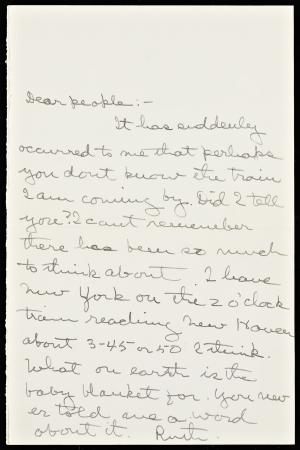 Dear people:-
It has suddenly
occurred to me that perhaps
you dont know the train
I am coming by. Did I tell
you? I cant remember
there has been so much
to think about. I have
New York on the 2 o'clock
train reaching New Haven
about 3-45 or 50 I think.
What on earth is the
baby blanket for. You nev
er told me a word
about it. Ruth.